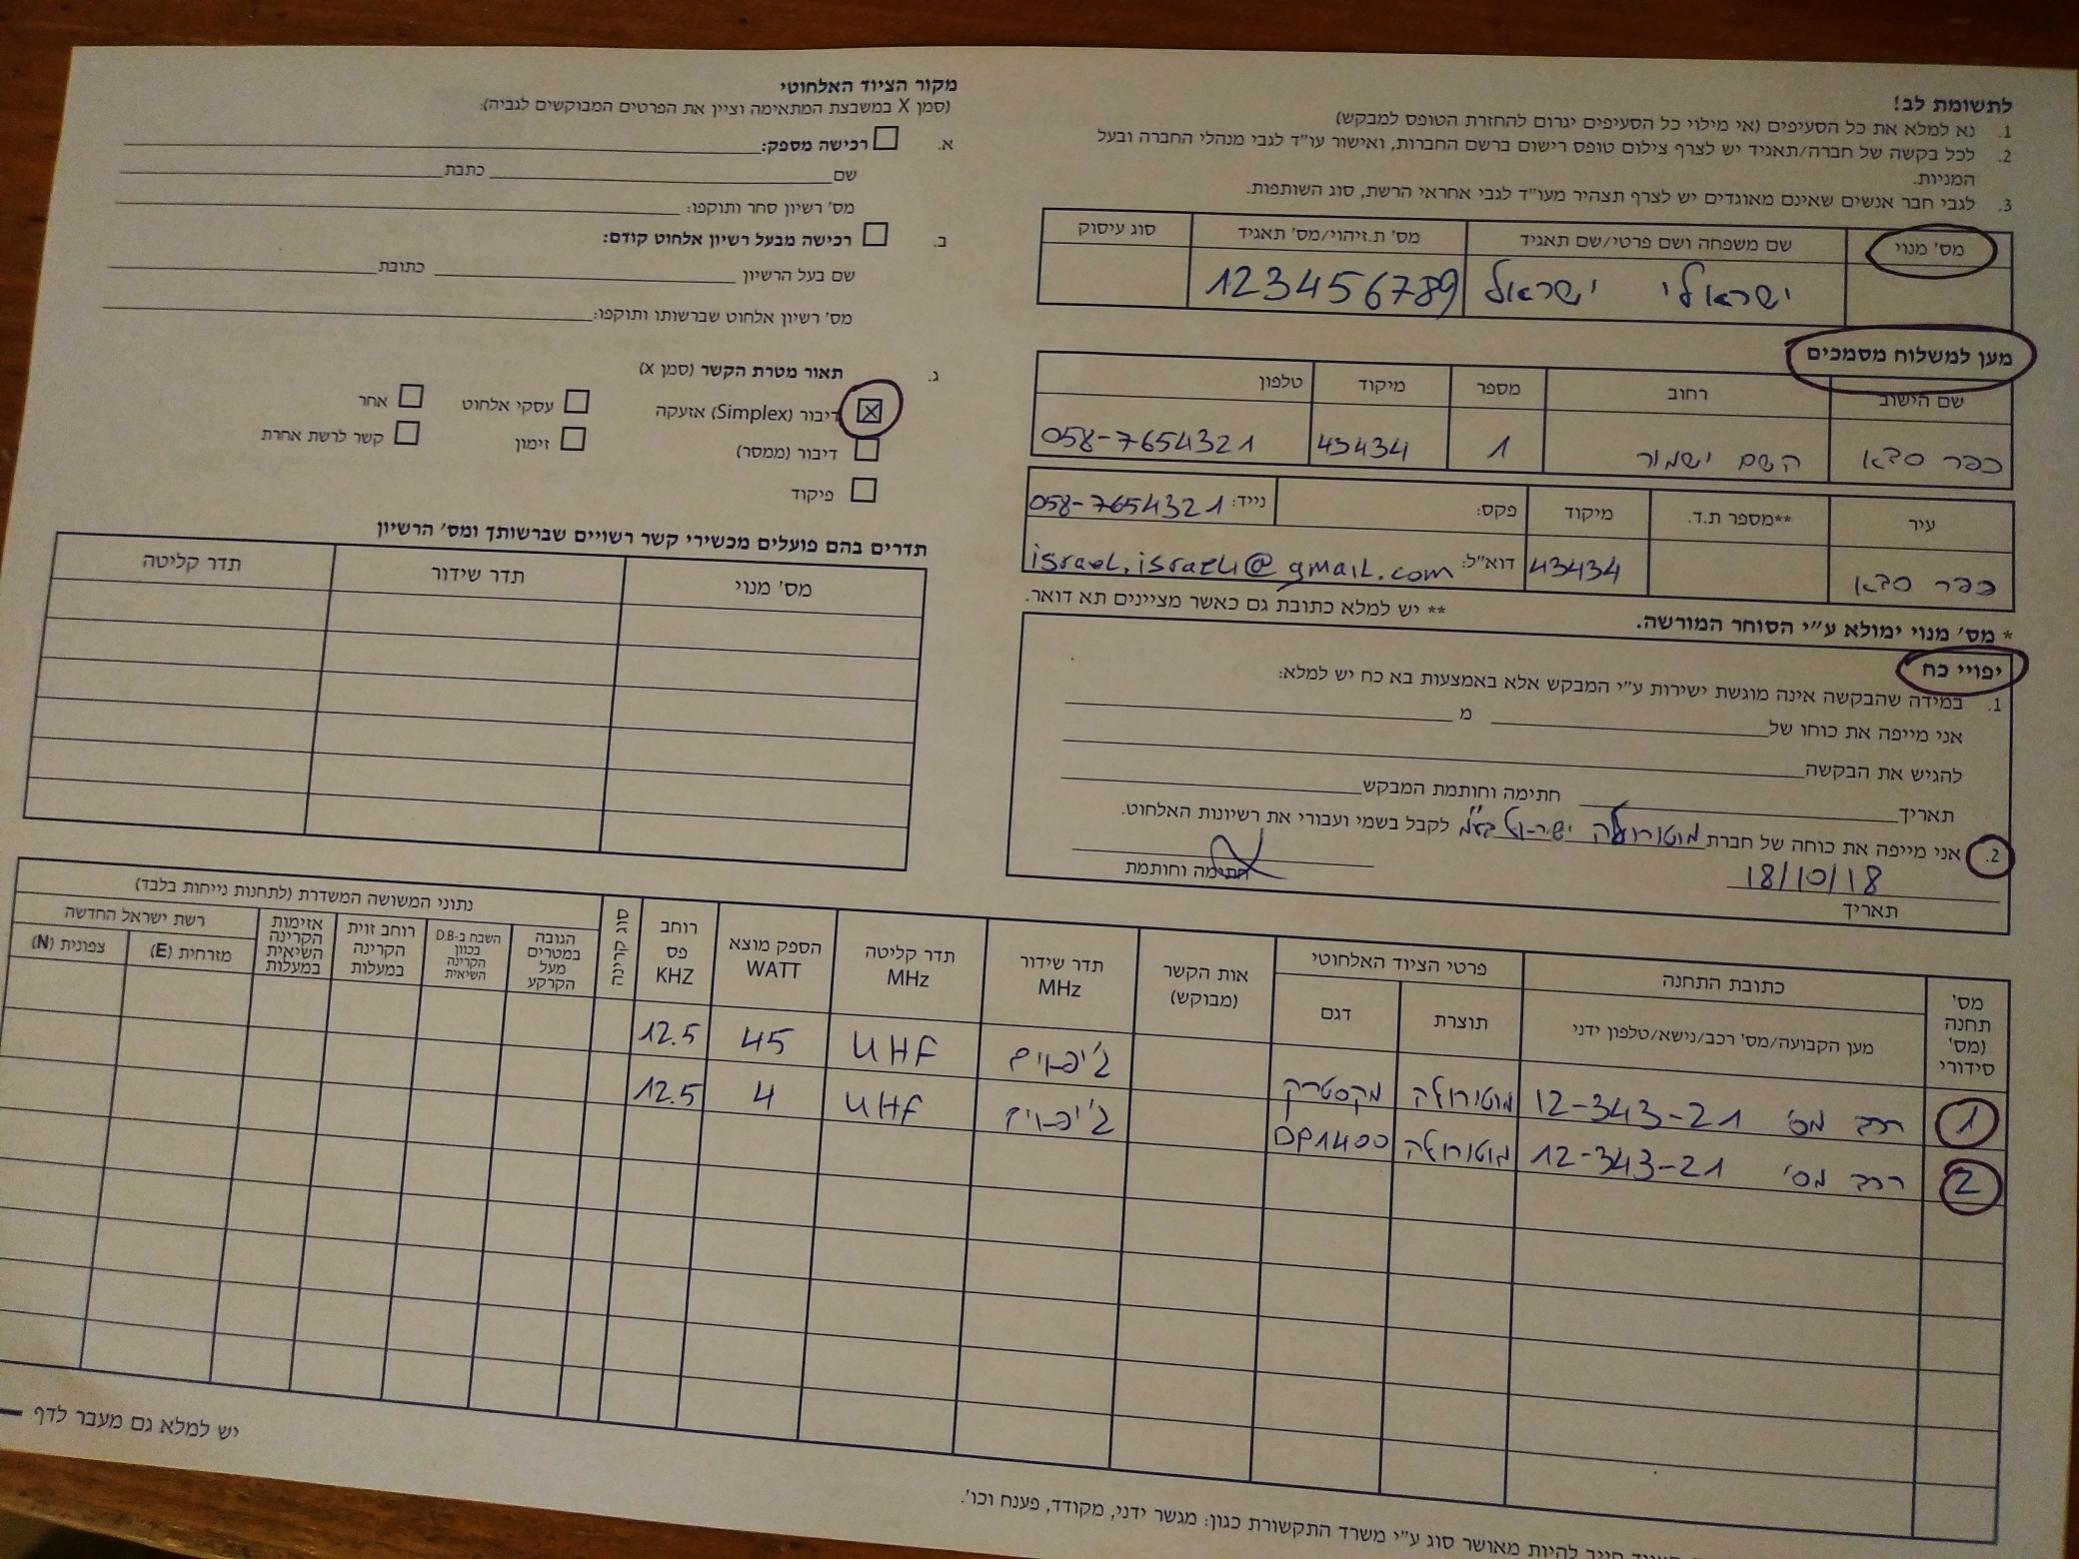 לתשומת לב!
1. נא למלא את כל הסעיפים (אי מילוי כל הסעיפים יגרום להחזרת הטופס למבקש)
2. לכל בקשה של חברה/תאגיד יש לצרף צילום טופס רישום ברשם החברות, ואישור עו"ד לגבי מנהלי החברה ובעל
המניות.
3. לגבי חבר אנשים שאינם מאוגדים יש לצרף תצהיר מעו"ד לגבי אחראי הרשת, סוג השותפות.
מס' מנוי שם משפחה ושם פרטי/שם תאגיד מס' ת.זיהוי/מס' תאגיד סוג עיסוק
ישראלי ישראל 123456789
מען למשלוח מסמכים
שם הישוב רחוב מספר מיקוד טלפון
כפר סבא השם ישמור 1 43434 058-7654321
עיר **מספר ת.ד. מיקוד פקס: נייד: 058-7654321
כפר סבא 43434 דוא"ל: israel.israeli@gmail.com
** יש למלא כתובת גם כאשר מציינים תא דואר.
* מס' מנוי ימולא ע"י הסוחר המורשה.
יפויי כח
1. במידה שהבקשה אינה מוגשת ישירות ע"י המבקש אלא באמצעות בא כח יש למלא:
אני מייפה את כוחו של מ
להגיש את הבקשה
תאריך חתימה וחותמת המבקש
2. אני מייפה את כוחה של חברת מוטורולה ישראל בע"מ לקבל בשמי ועבורי את רשיונות האלחוט.
18/10/18
תאריך חתימה וחותמת
מקור הציוד האלחוטי
(סמן X במשבצת המתאימה וציין את הפרטים המבוקשים לגביה):
א. רכישה מספק:
שם כתבת
מס' רשיון סחר ותוקפו:
ב. רכישה מבעל רשיון אלחוט קודם:
שם בעל הרשיון כתובת
מס' רשיון אלחוט שברשותו ותוקפו:
ג. תאור מטרת הקשר (סמן x)
X דיבור (Simplex) אזעקה עסקי אלחוט אחר
דיבור (ממסר) זימון קשר לרשת אחרת
פיקוד
תדרים בהם פועלים מכשירי קשר רשויים שברשותך ומס' הרשיון
מס' מנוי תדר שידור תדר קליטה
מס' תחנה (מס' סידורי כתובת התחנה פרטי הציוד האלחוטי אות הקשר (מבוקש) תדר שידור MHz תדר קליטה MHz הספק מוצא WATT רוחב פס KHZ סוג קרינה נתוני המשושה המשדרת (לתחנות נייחות בלבד)
מען הקבועה/מס' רכב/נישא/טלפון ידני תוצרת דגם הגובה במטרים מעל הקרקע השבח ב-D.B בכוון הקרינה השיאית רוחב זוית הקרינה במעלות אזימות הקרינה השיאית במעלות רשת ישראל החדשה
מזרחית (E) צפונית (N)
1 רכב מס' 12-343-21 מוטורולה מקסטרק ג'יפאים UHF 45 12.5
2 רכב מס' 12-343-21 מוטורולה DP1400 ג'יפאים UHF 4 12.5
יש למלא גם מעבר לדף
חייב להיות מאושר סוג ע"י משרד התקשורת כגון: מגשר ידני, מקודד, פענח וכו'.